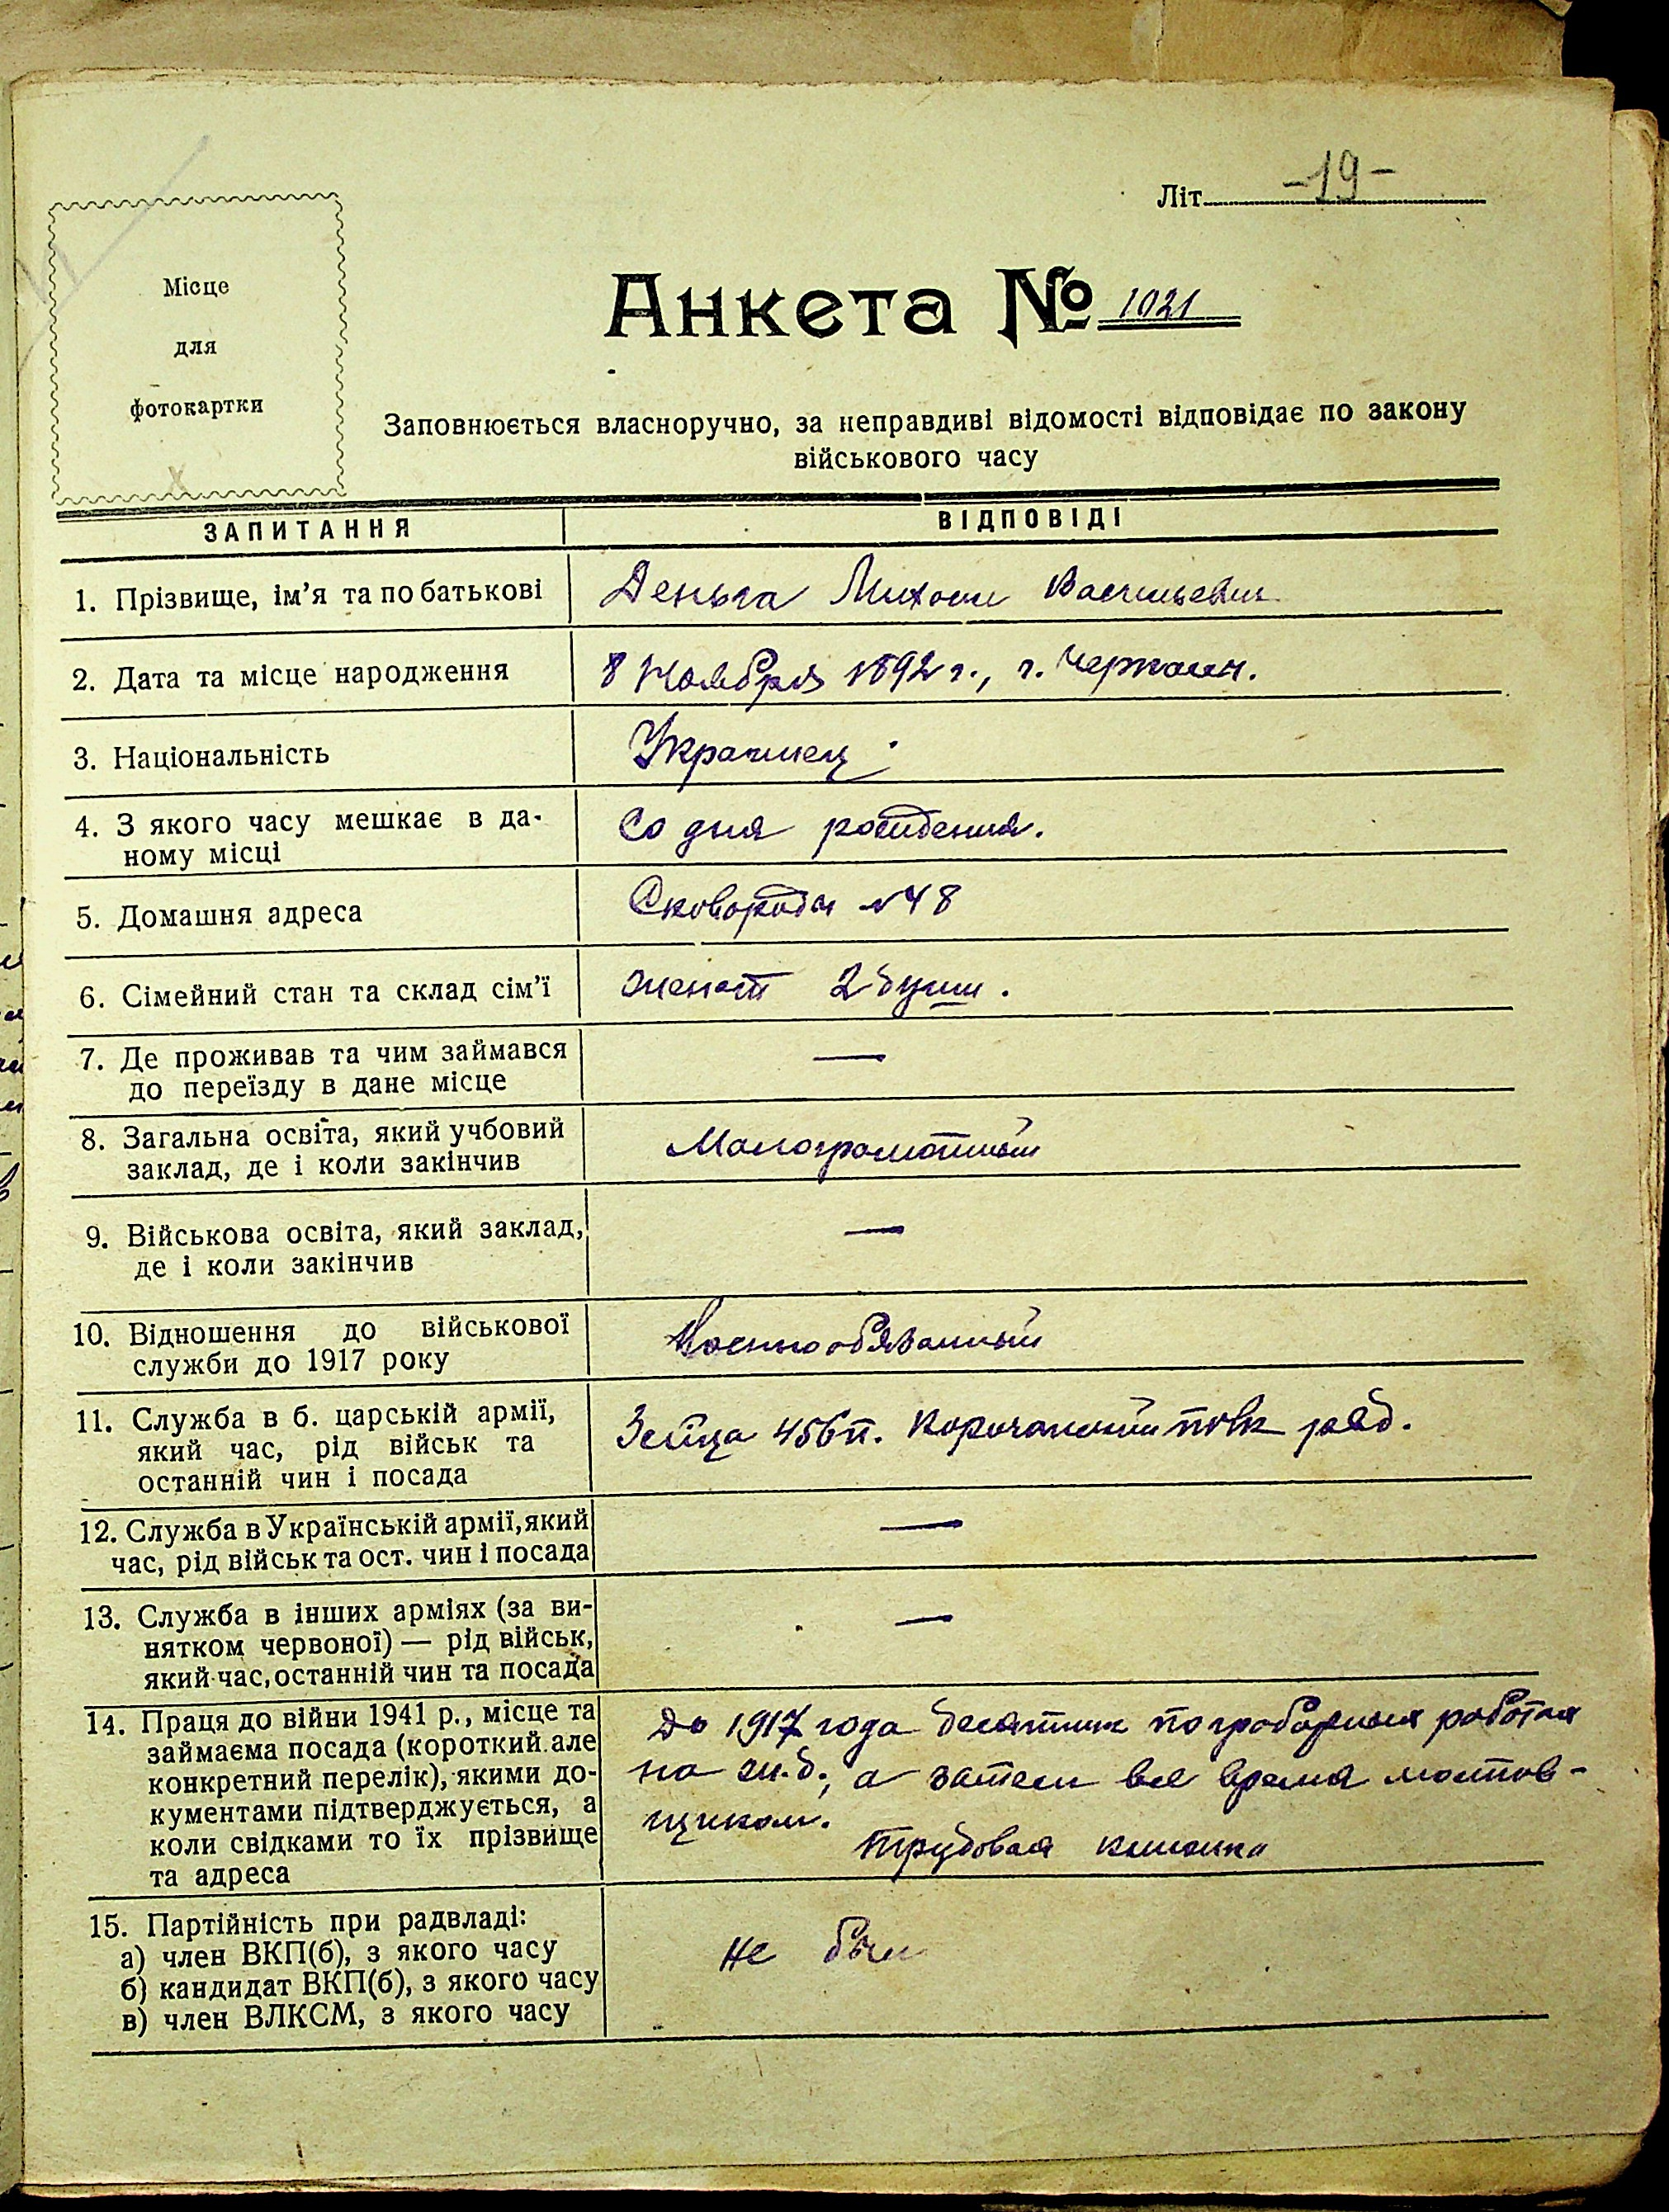 Літ. -19-
Місце
для
фотокартки
Анкета № 1021
Заповнюється власноручно, за неправдиві відомості відповідає по закону
військового часу
ЗАПИТАННЯ ВІДПОВІДІ
1. Прізвище, ім'я та по батькові Деньга Михаил Васильевич
2. Дата та місце народження 8 Ноября 1892 г., г. Черкассы.
3. Національність Украинец
4. З якого часу мешкає в да-
ному місці Со дня рождения.
5. Домашня адреса Сковороды №48
6. Сімейний стан та склад сім'ї женат 2 души.
7. Де проживав та чим займався —
до переїзду в дане місце
8. Загальна освіта, який учбовий
заклад, де і коли закінчив Малограмотный
9. Військова освіта, який заклад, —
де і коли закінчив
10. Відношення до військової
служби до 1917 року Военнообязанный
11. Служба в б. царській армії,
який час, рід військ та 456 п. полк ряд.
останній чин і посада
12. Служба в Українській армії, який —
час, рід військ та ост. чин і посада
13. Служба в інших арміях (за ви- —
нятком червоної) — рід військ,
який час, останній чин та посада
14. Праця до війни 1941 р., місце та До 1917 года десятник по работах
займаєма посада (короткий але
конкретний перелік), якими до- на ж.д., а затем все время мостов-
кументами підтверджується, а щиком.
коли свідками то їх прізвище Трудовая книжка
та адреса
15. Партійність при радвладі:
а) член ВКП(б), з якого часу не был
б) кандидат ВКП(б), з якого часу
в) член ВЛКСМ, з якого часу